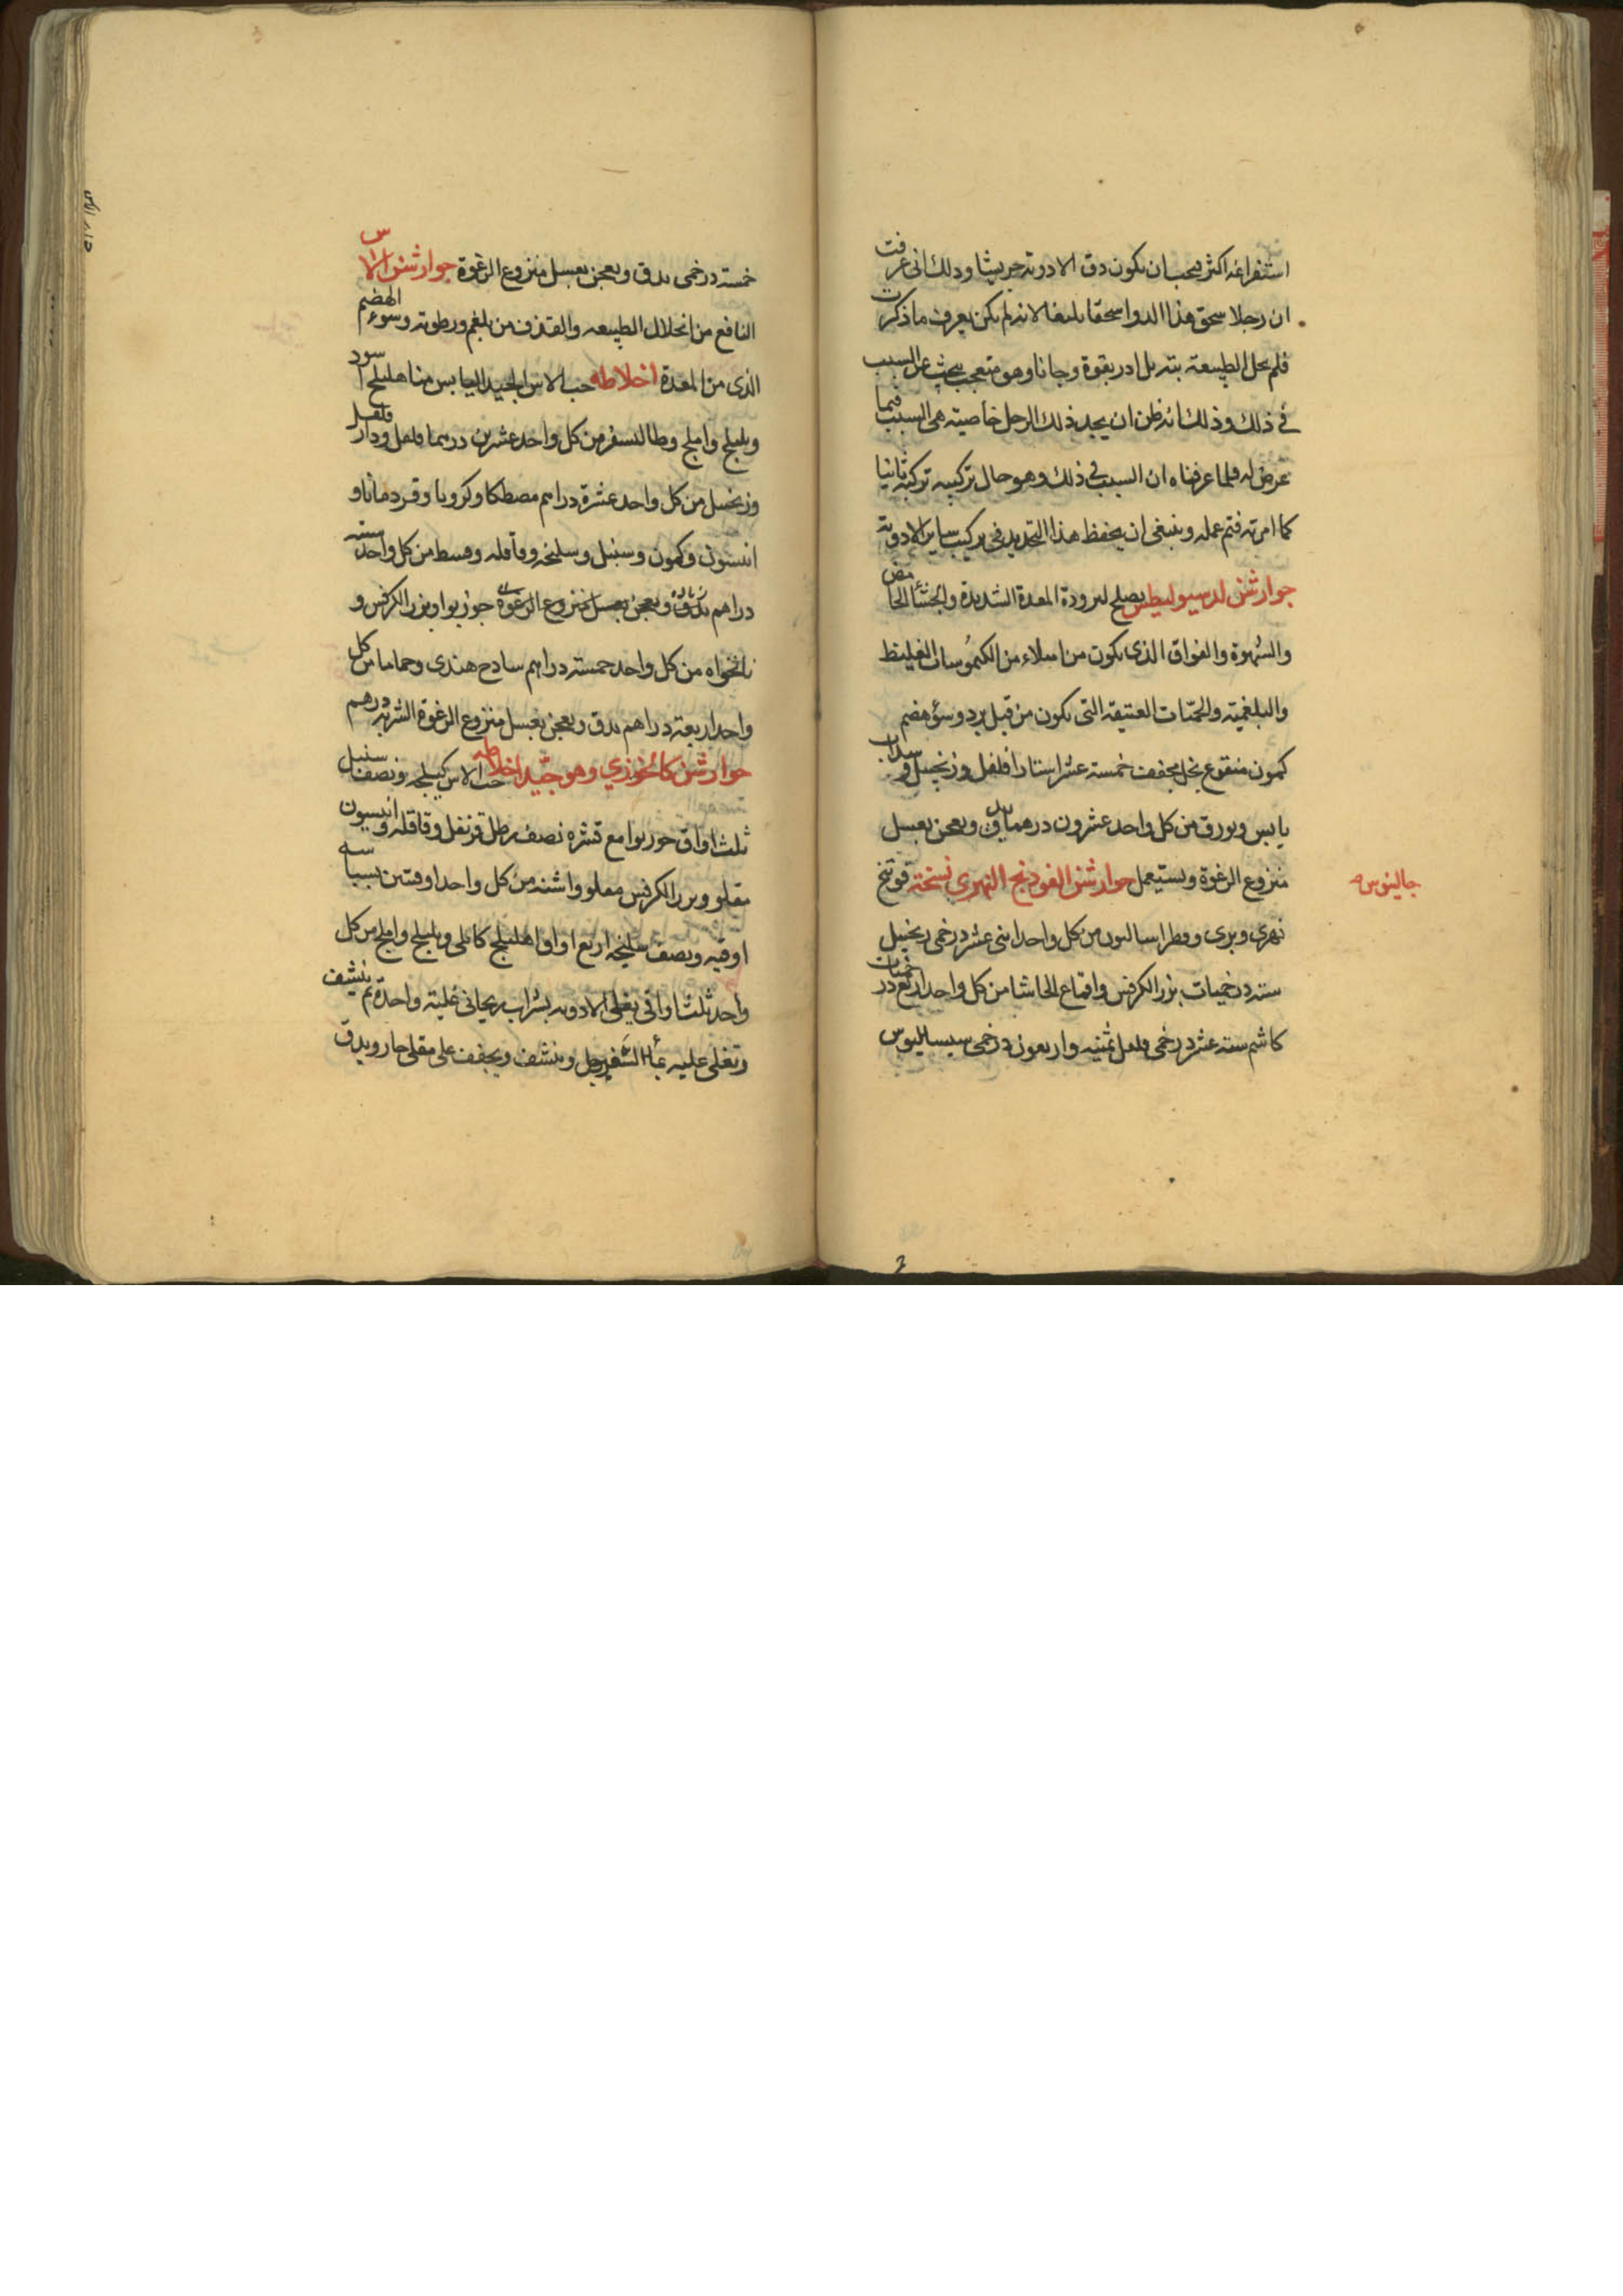 استفراغه اكثر فيجب ان يكون دق الادوية جريشا وذلك انى عرفت
ان رجلا سحق هذا الدوا سحقا بليغا لانه لم يكن يعرف ما ذكرت
فلم يحل الطبيعة بتة بل ادر بقوة وجانا وهو متعجب يبحث عن السبب
فى ذلك وذلك انه ظن ان يجد ذلك الرجل خاصيته هى السبب فيما
عرض له فلما عرفناه ان السبب فى ذلك وهو حال تركيبه تركبه ثانيا
كما امرته فتم عمله وينبغى ان يحفظ هذا التحديد فى تركيب ساير الادوية
جوارشن يصلح لبرودة المعدة الشديدة والجشا الحامض
والشهوة والفواق الذى يكون من امتلاء من الكيموسات الغليظ
والبلغمية والحميات العتيقة التى يكون من قبل برد وسوء هضم
كمون منقوع بخل مجفف خمسة عشر استارا فلفل وزنجبيل وسذاب
يابس وبورق من كل واحد عشرون درهما يدق ويعجن بعسل
منزوع الرغوة ويستعمل جوارشن الفودنج النهرى نسخة فوتنج
جالينوس
نهرى وبرى وفطراساليون من كل واحد اثنى عشر درخمى زنجبيل
ستة درخميات بزر الكرفس واقماع الحاشا من كل واحد اربع درخميات
كاشم ستة عشر درخمى فلفل ثمنية واربعون درخمى سيساليوس
خمسة درخمى يدق ويعجن بعسل منزوع الرغوة جوارشن الاس
النافع من انحلال الطبيعة والقذف من بلغم ورطوبة وسوء الهضم
الذى من المعدة اخلاطه حب الاس الجيد اليابس منا هليلج اسود
وبليلج واملج وطاليسفر من كل واحد عشرين درهما فلفل ودارفلفل
وزنجبيل من كل واحد عشرة دراهم مصطكا وكرويا وقردمانا و
انيسون وكمون وسنبل وسليخه وقاقله وقسط من كل واحد ستة
دراهم يدق ويعجن بعسل منزوع الرغوة جوزبوا وبزر الكرفس و
نانخواه من كل واحد خمسة دراهم سادج هندى وحماما من كل
واحد اربعة دراهم يدق ويعجن بعسل منزوع الرغوة الشربة درهم
جوارشن كالخوزي وهو جيد اخلاطه حب الاس كيلجه ونصف سنبل
ثلث اواق جوزبوا مع قشره نصف رطل قرنفل وقاقله وانيسون
مقلو وبزر الكرفس مقلو واشنه من كل واحد اوقيتين بسباسه
اوقيه ونصف سليخه اربع اواق اهليلج كابلى وبليلج واملج من كل
واحد ثلث اواقى يغلى الادوية بشراب ريحانى غلية واحدة ثم ينشف
وتغلى عليه بما السفرجل وينشف ويجفف على مقلى حار ويدق